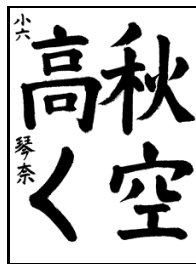 秋空
高く
小六 琴奈